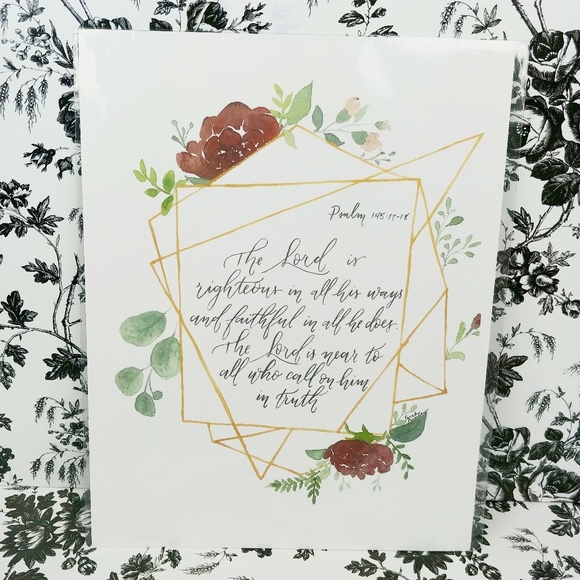 Psalm 145:17-18
The Lord is
righteous in all his ways
and faithful in all he does.
The Lord is near to
all who call on him
in truth